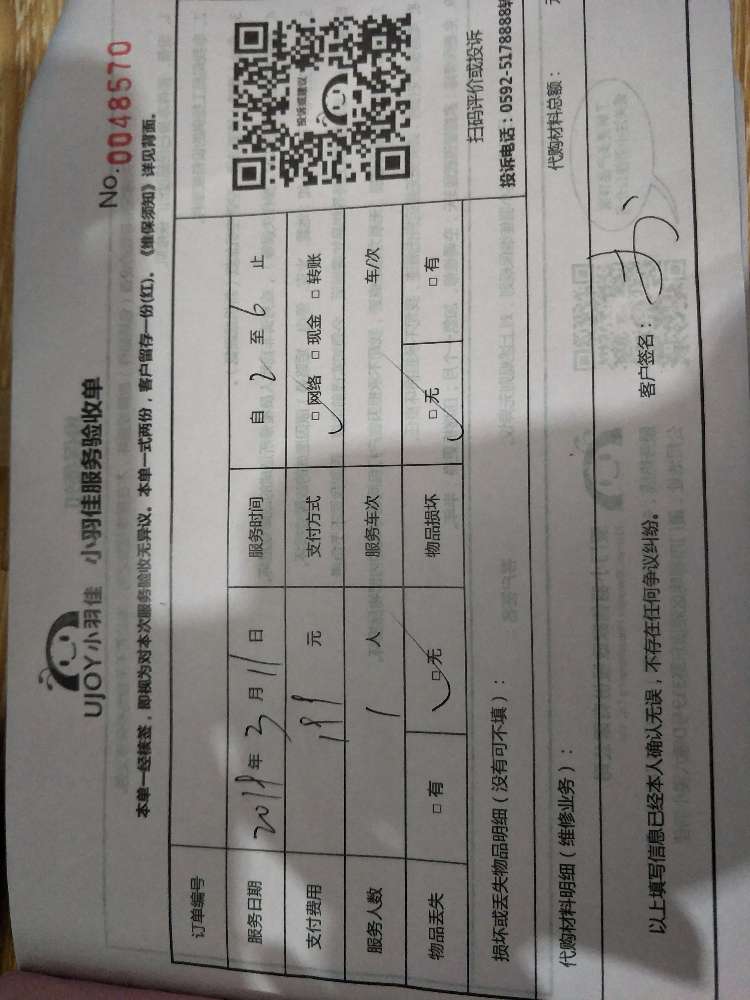 UJOY小羽佳 小羽佳服务验收单
No. 0048570
本单一经核签，即视为对本次服务验收无异议。本单一式两份，客户留存一份(红)。《维保须知》详见背面。
订单编号
服务日期 年 3 月 11 日 服务时间 自 2 至 6 止
支付费用 元 支付方式 □网络 □现金 □转账
服务人数 1 人 服务车次 车/次
物品丢失 □有 □无 物品损坏 □无 □有
投诉或建议
扫码评价或投诉
投诉电话：0592-5178888转
损坏或丢失物品明细（没有可不填）：
代购材料明细（维修业务）： 代购材料总额： 元
以上填写信息已经本人确认无误，不存在任何争议纠纷。 客户签名：